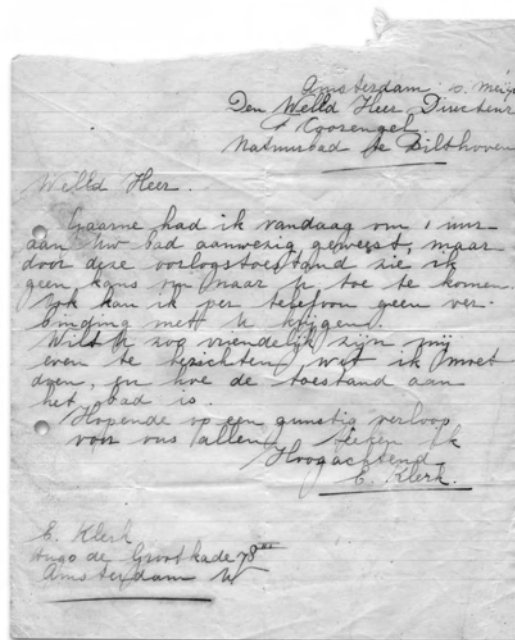 Amsterdam
Den Welld Heer Directeur
Natuurbad te Bilthoven
Welld Heer.
Gaarne had ik vandaag om 1 uur
aan Uw bad aanwezig geweest, maar
door deze oorlogstoestand zie ik
geen kans om naar U toe te komen.
Ook kan ik per telefoon geen ver-
binding met U krijgen.
Wilt U zoo vriendelijk zijn mij
even te berichten, wat ik moet
doen, en hoe de toestand aan
het bad is.
Hopende op een gunstig verloop
voor ons allen, teeken ik
Hoogachtend
E. Klerk.
E. Klerk
Hugo de Grootkade 78 III
Amsterdam W